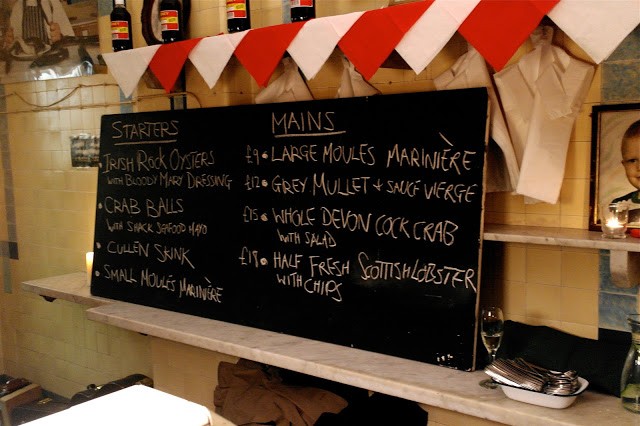 STARTERS
IRISH ROCK OYSTERS
WITH BLOODY MARY DRESSING
CRAB BALLS
WITH SHACK SEAFOOD MAYO
CULLEN SKINK
SMALL MOULES MARINIÈRE
MAINS
£9 LARGE MOULES MARINIÈRE
£12 GREY MULLET + SAUCE VIERGE
£15 WHOLE DEVON COCK CRAB
WITH SALAD
£18 HALF FRESH SCOTTISH LOBSTER
WITH CHIPS